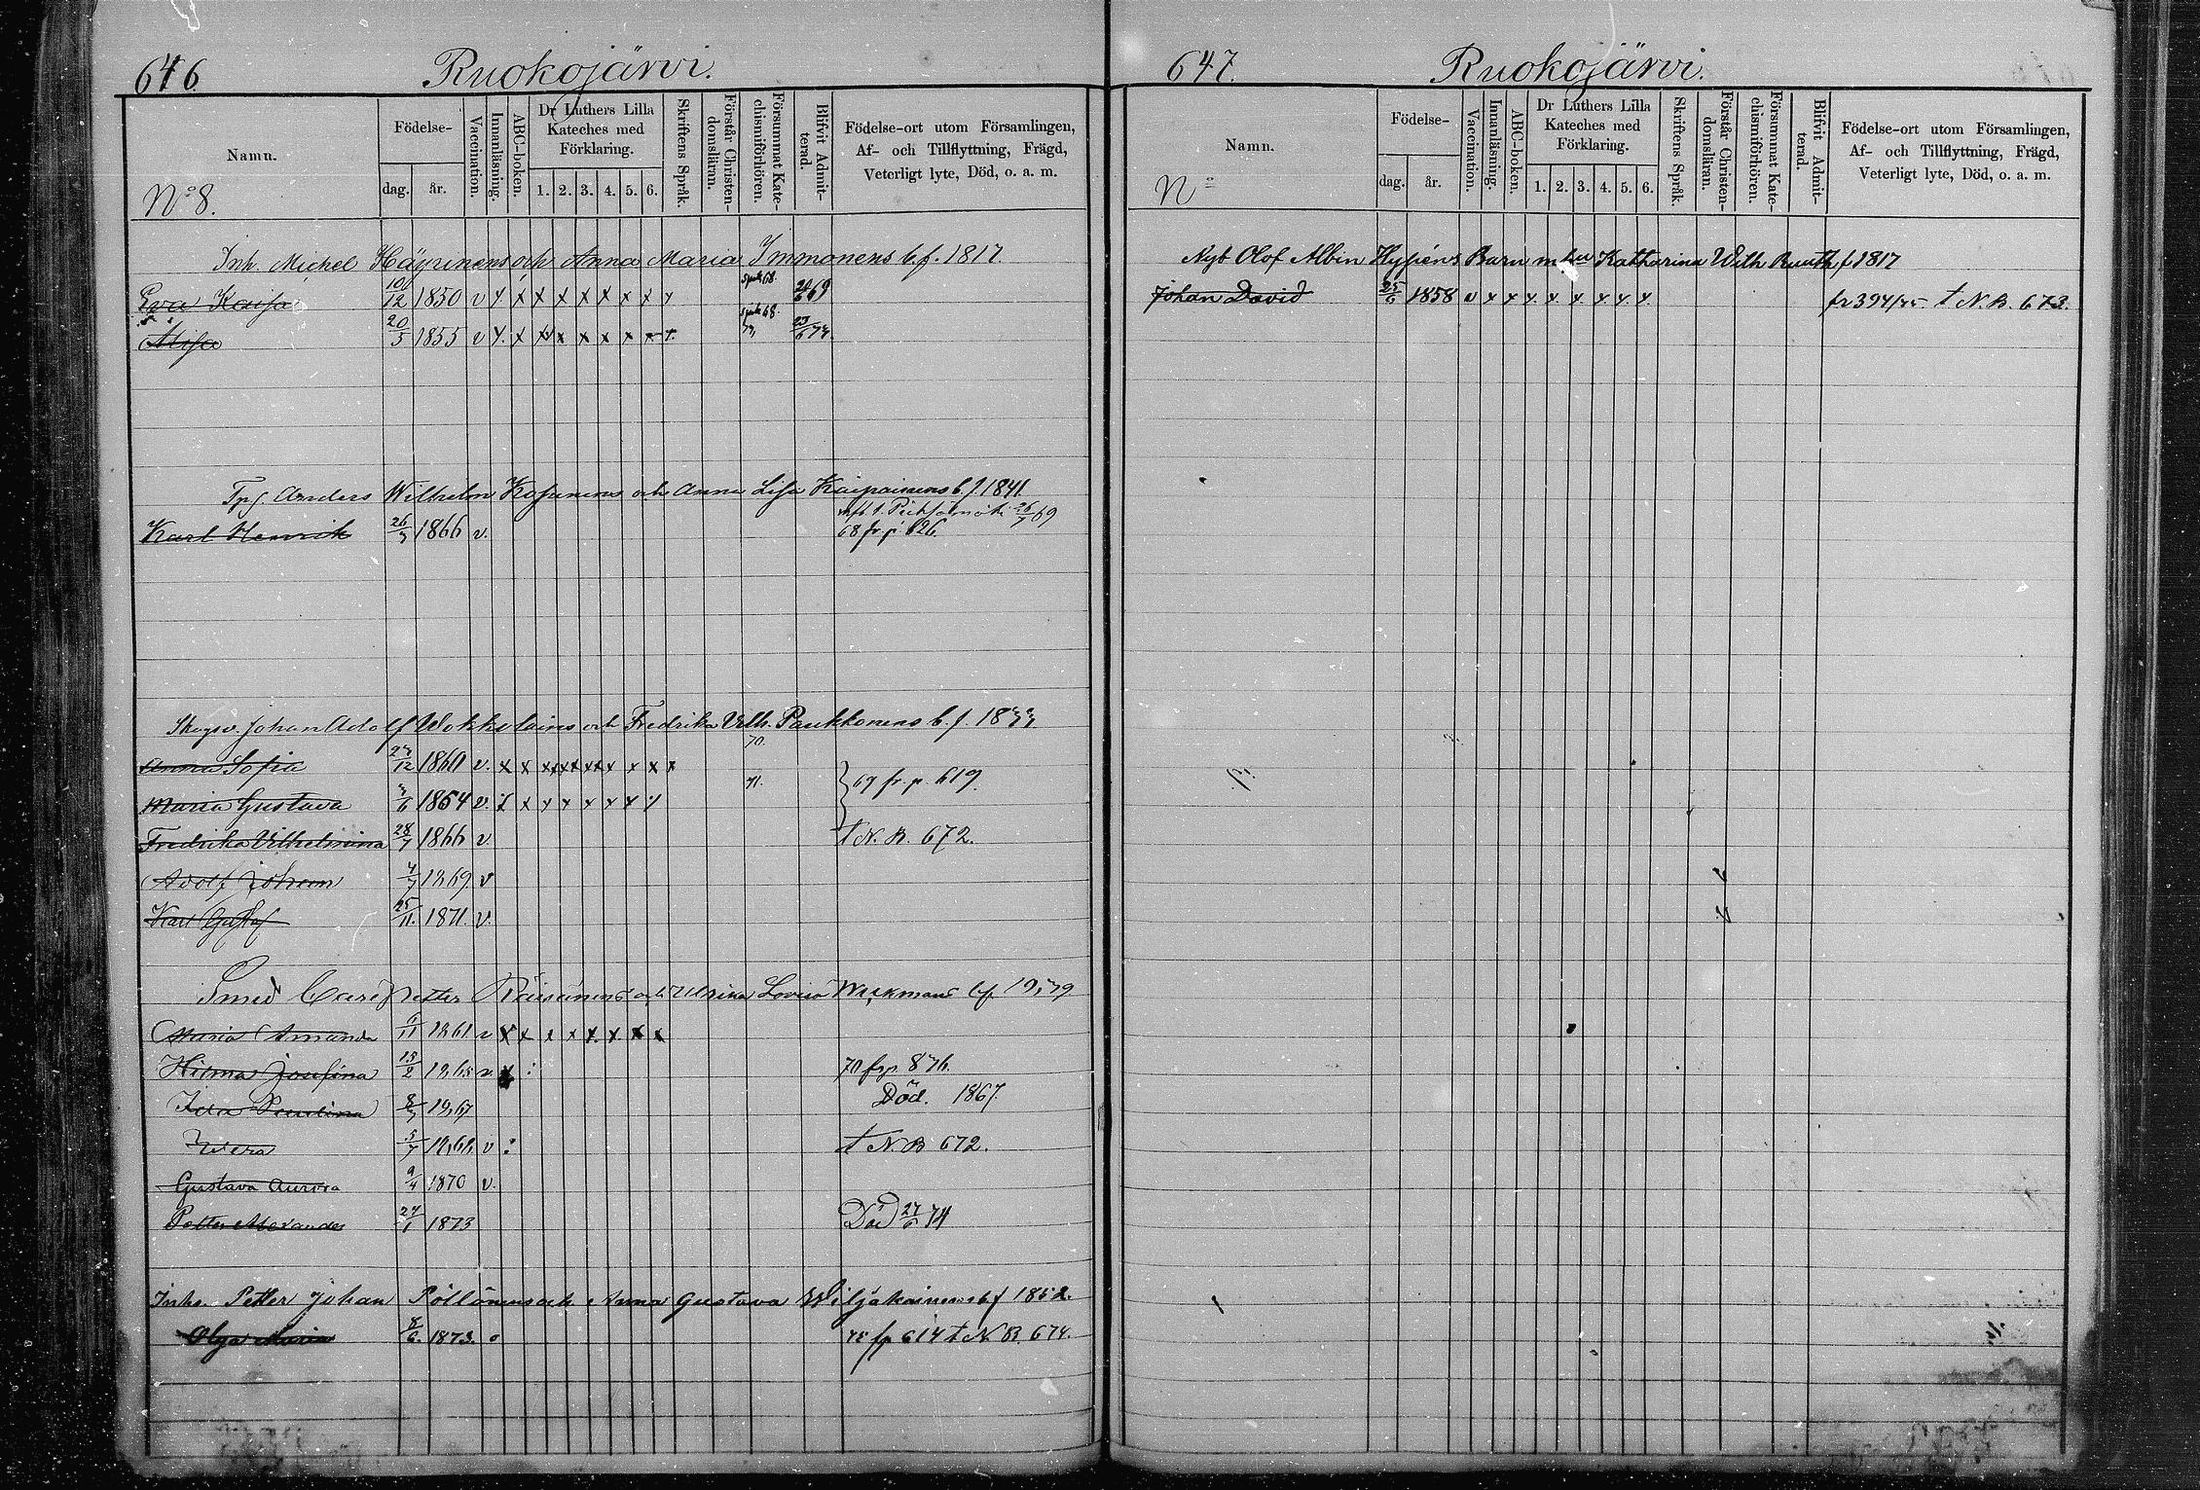 646 Ruokojärvi.
Namn.
Födelse-
dag. år.
Vaccination.
Innanläsning.
ABC-boken.
Dr Luthers Lilla Kateches med Förklaring.
1. 2. 3. 4. 5. 6.
Skriftens Språk.
Förstår Christendomsläran.
Försummat Katechismiförhören.
Blifvit Admitterad.
Födelse-ort utom Församlingen,
Af- och Tillflyttning, Frägd,
Veterligt lyte, Död, o. a. m.
No 8.
Inh. Michel Häyrinens och Anna Maria Immonens b. f. 1817
Eva Kaisa 10/12 1850 v x x x x x x x x x
20/5 1855 v x x x x x x x x x
Anders Wilhelm Kosunens och Anna Lisa Kaipainens b. f. 1841
Karl Henrik 26/3 1866 v. 68 fr p 626.
Skogsv. Johan Adolf Wokkolains och Fredrika Vilh. Paukkonens b. f. 1833
70.
Anna Sofia 27/12 1860 v. x x x x x x x x x
71. 67 fr. p. 619.
Maria Gustava 3/6 1864 v. x x x x x x x x
Fredrika Vilhelmina 28/7 1866 v. t N. B. 672.
Adolf Johan 4/7 1869 v
Karl Gustaf 25/11 1871. v.
Smed Carl Petter Räisänens och Ulrika Lovisa Wackmans bf 1839
Maria Amanda 1861 v x x x x x x x x
Hilma Josefina 13/2 1865 v. x : 70 frp 876.
Ida Paulina 8/3 1867 Död. 1867.
5/7 1868 v : t N. B 672.
Gustava Aurora 9/4 1870 v.
Petter Alexander 27/1 1873 Död 27/6 74
Inhs. Petter Johan Pöllänens och Anna Gustava Wiljakainens bf 1852.
Olga Maria 8/6 1873. 75 fp 614 t N. B. 674.
647. Ruokojärvi.
Namn.
Födelse-
dag. år.
Vaccination.
Innanläsning.
ABC-boken.
Dr Luthers Lilla Kateches med Förklaring.
1. 2. 3. 4. 5. 6.
Skriftens Språk.
Förstår Christendomsläran.
Försummat Katechismiförhören.
Blifvit Admitterad.
Födelse-ort utom Församlingen,
Af- och Tillflyttning, Frägd,
Veterligt lyte, Död, o. a. m.
No
Nyb Olof Albin Hypéns Barn m hu Katharina Wilh Ruuth f 1817
Johan David 25/6 1858 v x x x x x x x x fr 394/75 t N. B. 673.